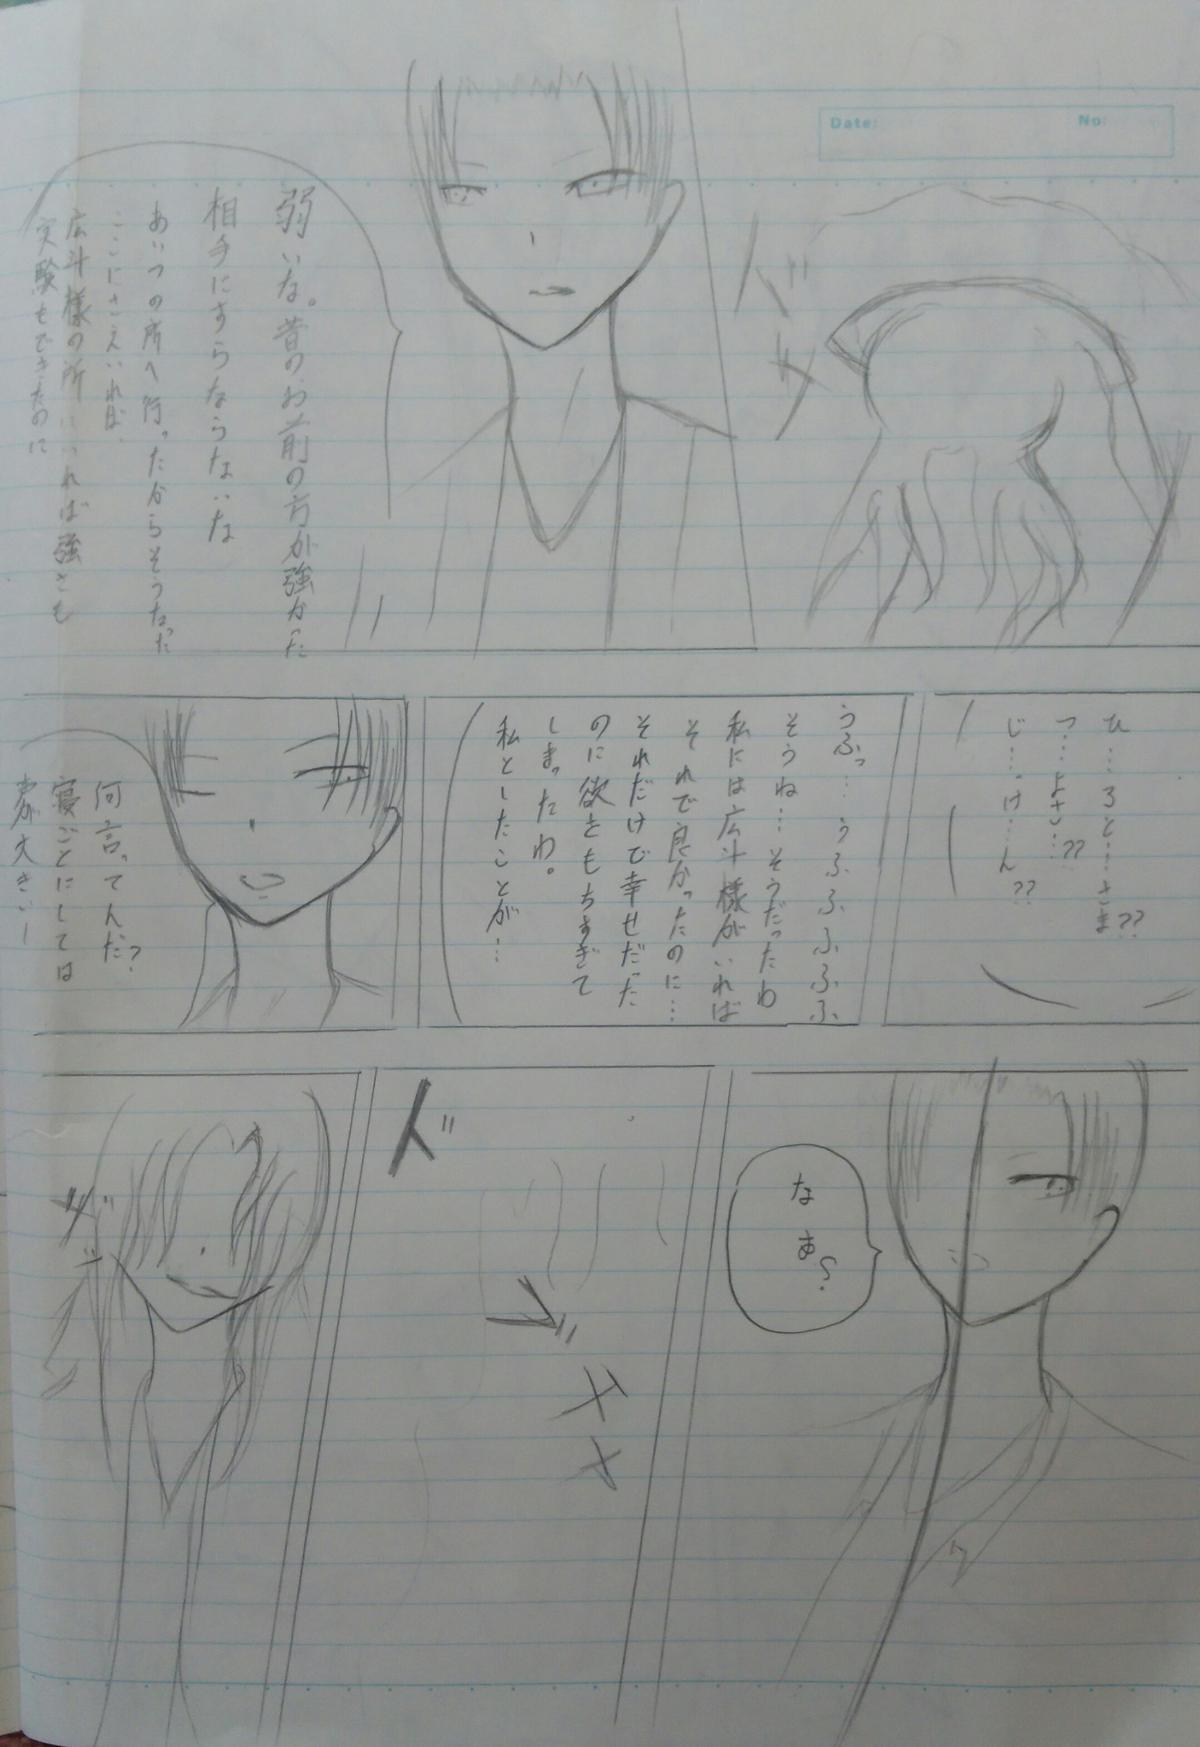 Date:
No:
弱いな。昔のお前の方が強かった
相手にすらならないな
あいつの所へ行ったからそうなった
ここにさえいれば、
広斗様の所にいれば強さも
実験もできたのに
ひ…ろと…さま??
つ…よさ…??
じ…け…ん??
うふっ…うふふふふふ
そうね…そうだったわ
私には広斗様がいれば
それで良かったのに…
それだけで幸せだった
のに欲をもちすぎて
しまったわ。
私としたことが…
何言ってんだ?
寝ごとにしては
声が大きいー
なぁ?
ド
メメ